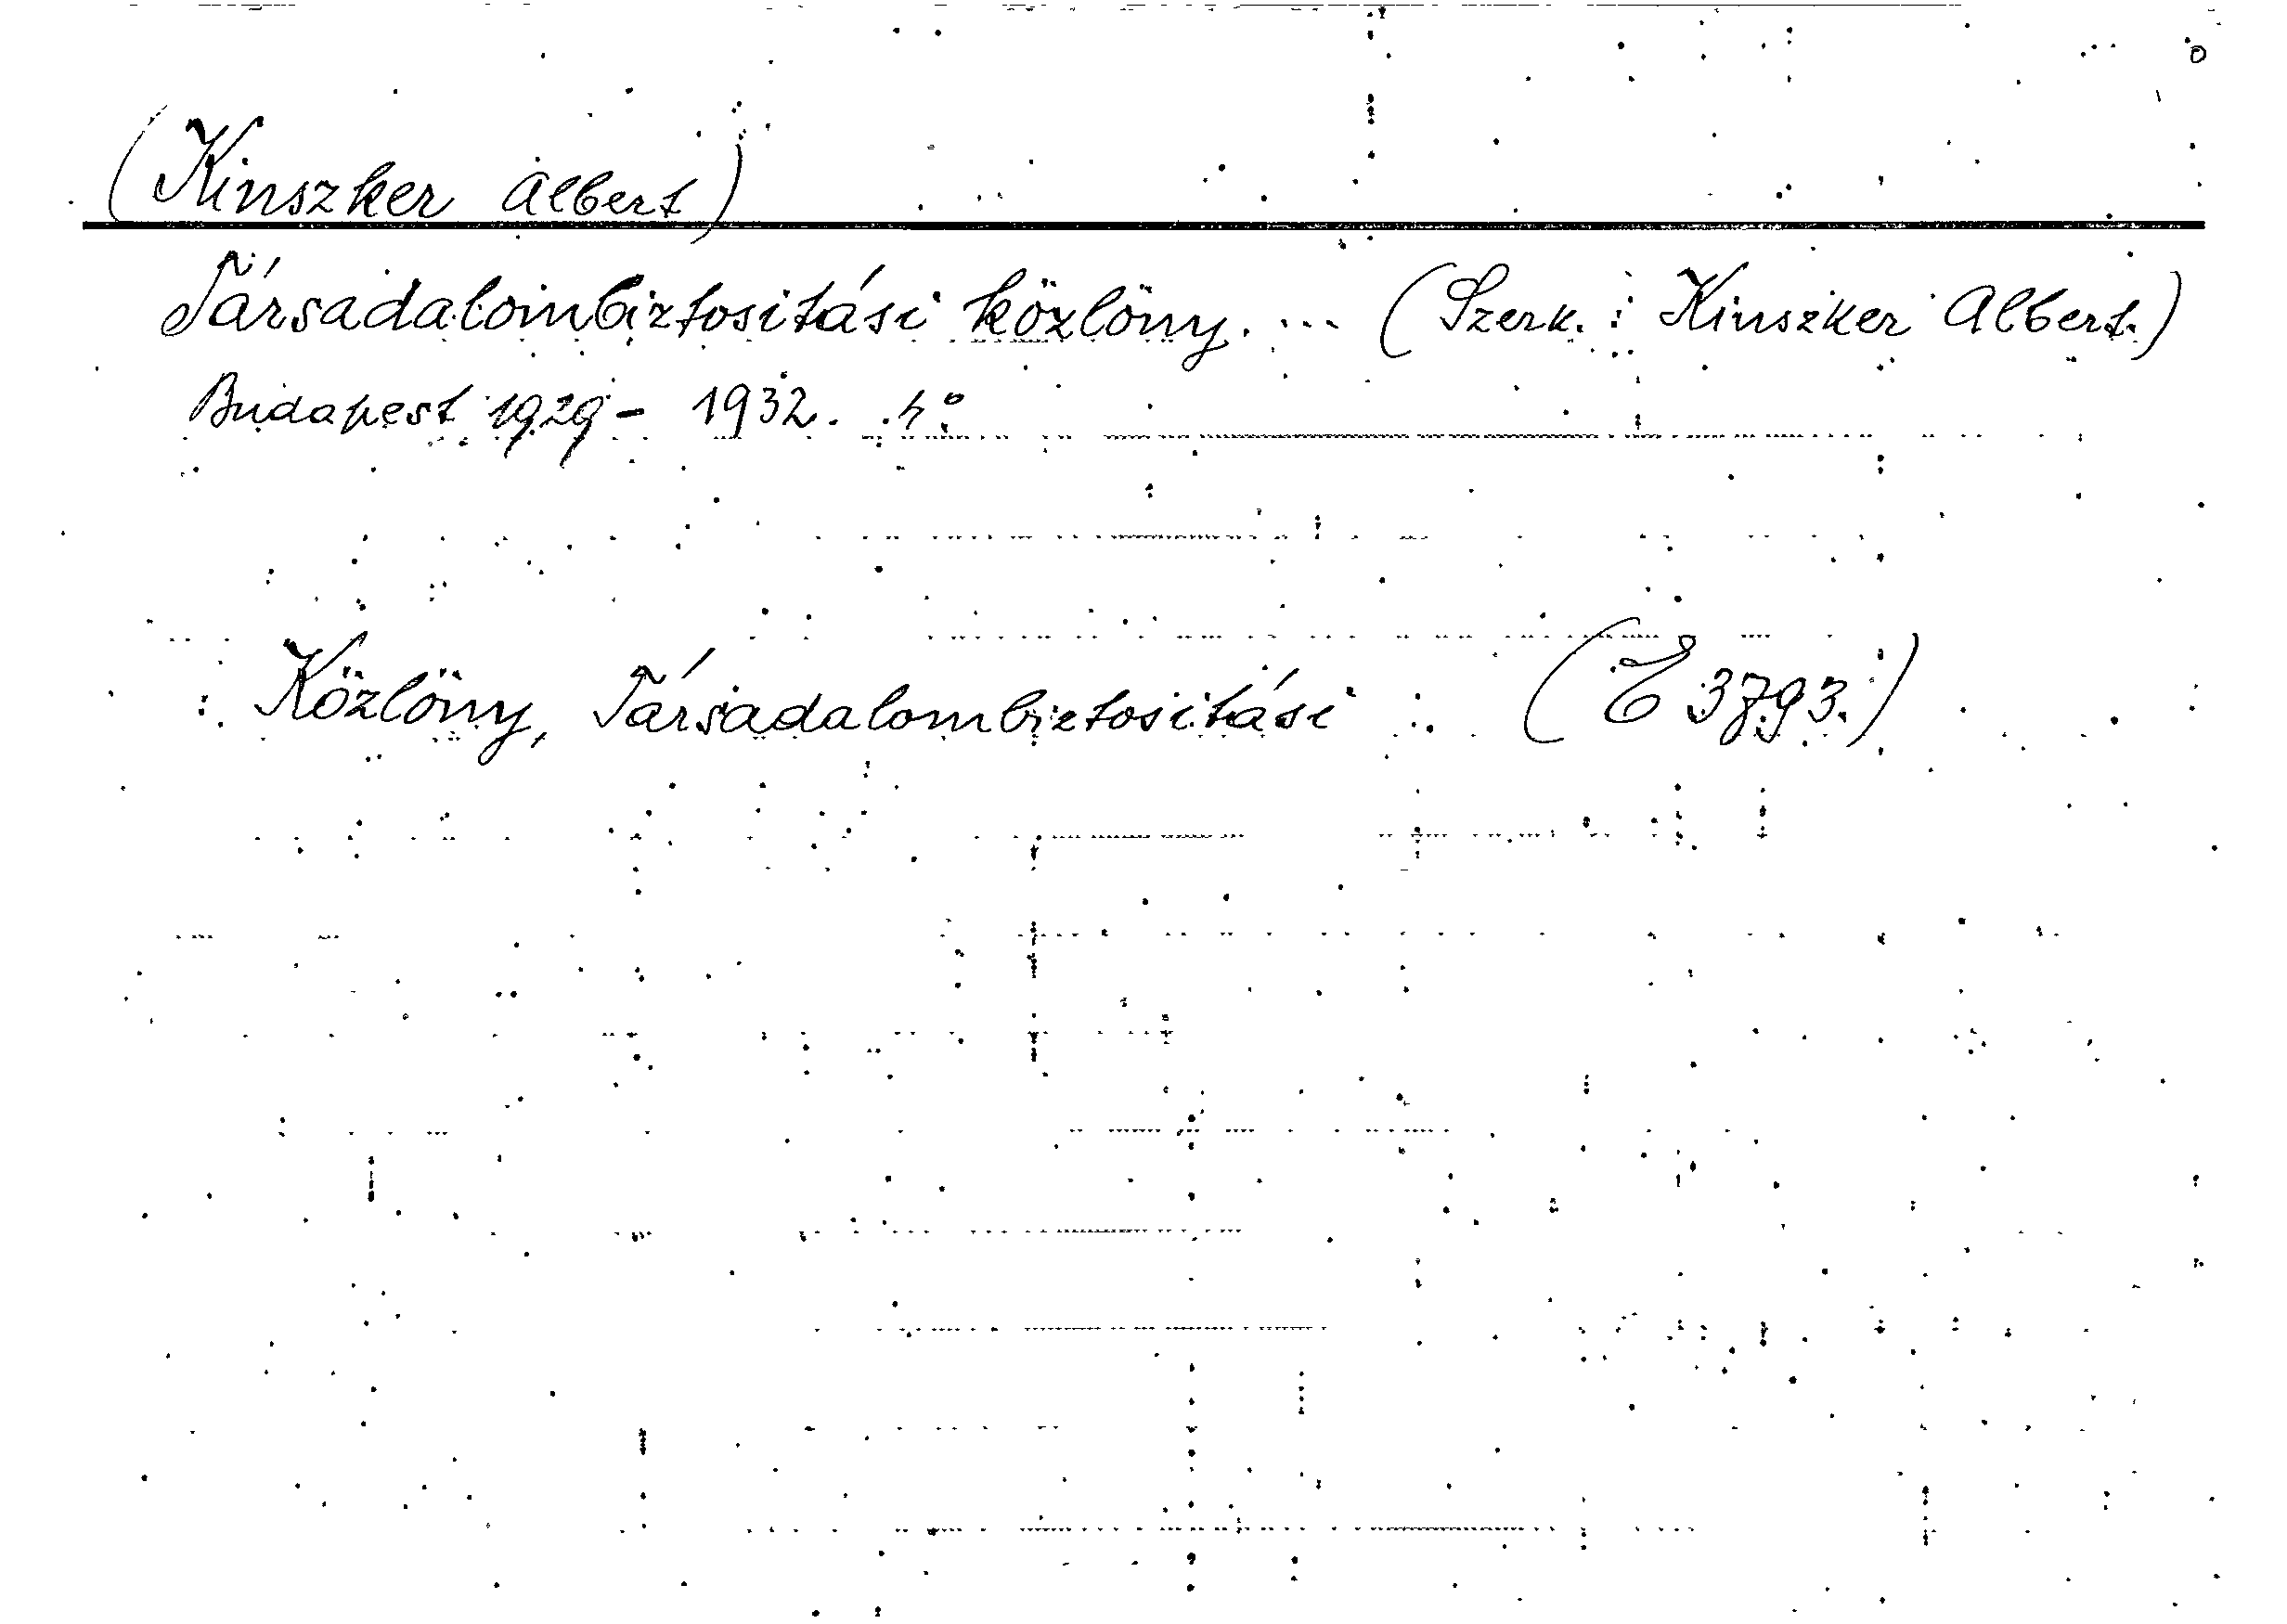 (Kinszker Albert)
Társadalombiztositási közlöny. ... (Szerk.: Kinszker Albert.)
Budapest 1929- 1932. 4°
Közlöny, Társadalombiztositási (E 3793.)